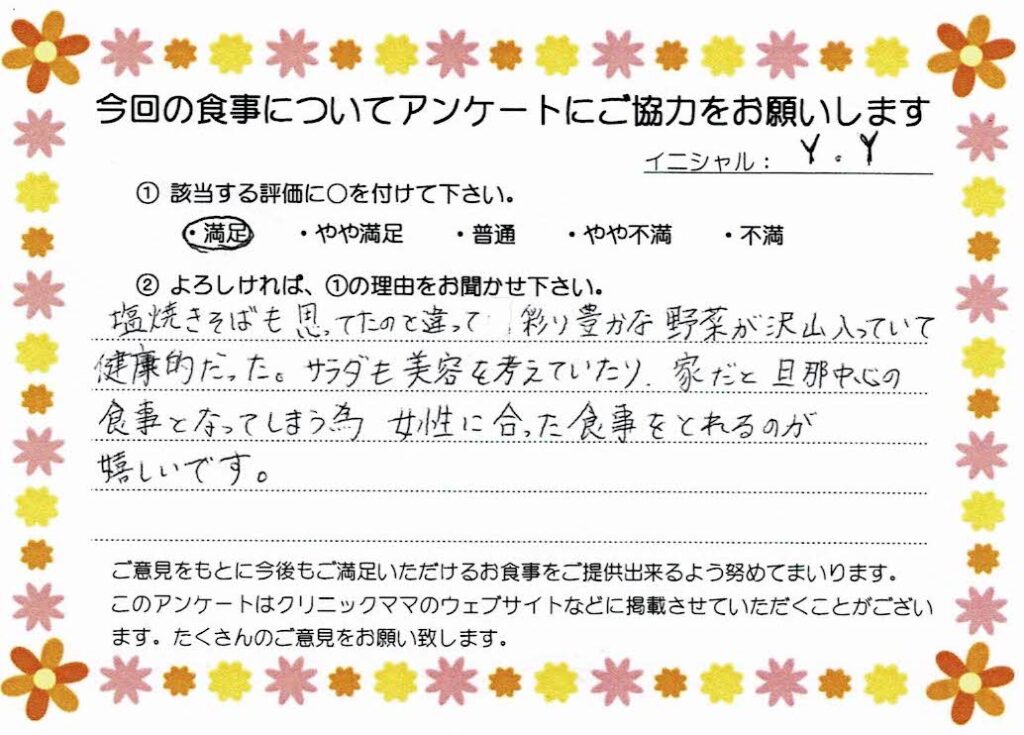 今回の食事についてアンケートにご協力をお願いします
イニシャル： Y.Y
① 該当する評価に○を付けて下さい。
・満足 ・やや満足 ・普通 ・やや不満 ・不満
② よろしければ、①の理由をお聞かせ下さい。
塩焼きそばも思ってたのと違って 彩り豊かな野菜が沢山入っていて
健康的だった。サラダも美容を考えていたり、家だと旦那中心の
食事となってしまう為 女性に合った食事をとれるのが
嬉しいです。
ご意見をもとに今後もご満足いただけるお食事をご提供出来るよう努めてまいります。
このアンケートはクリニックママのウェブサイトなどに掲載させていただくことがござい
ます。たくさんのご意見をお願い致します。